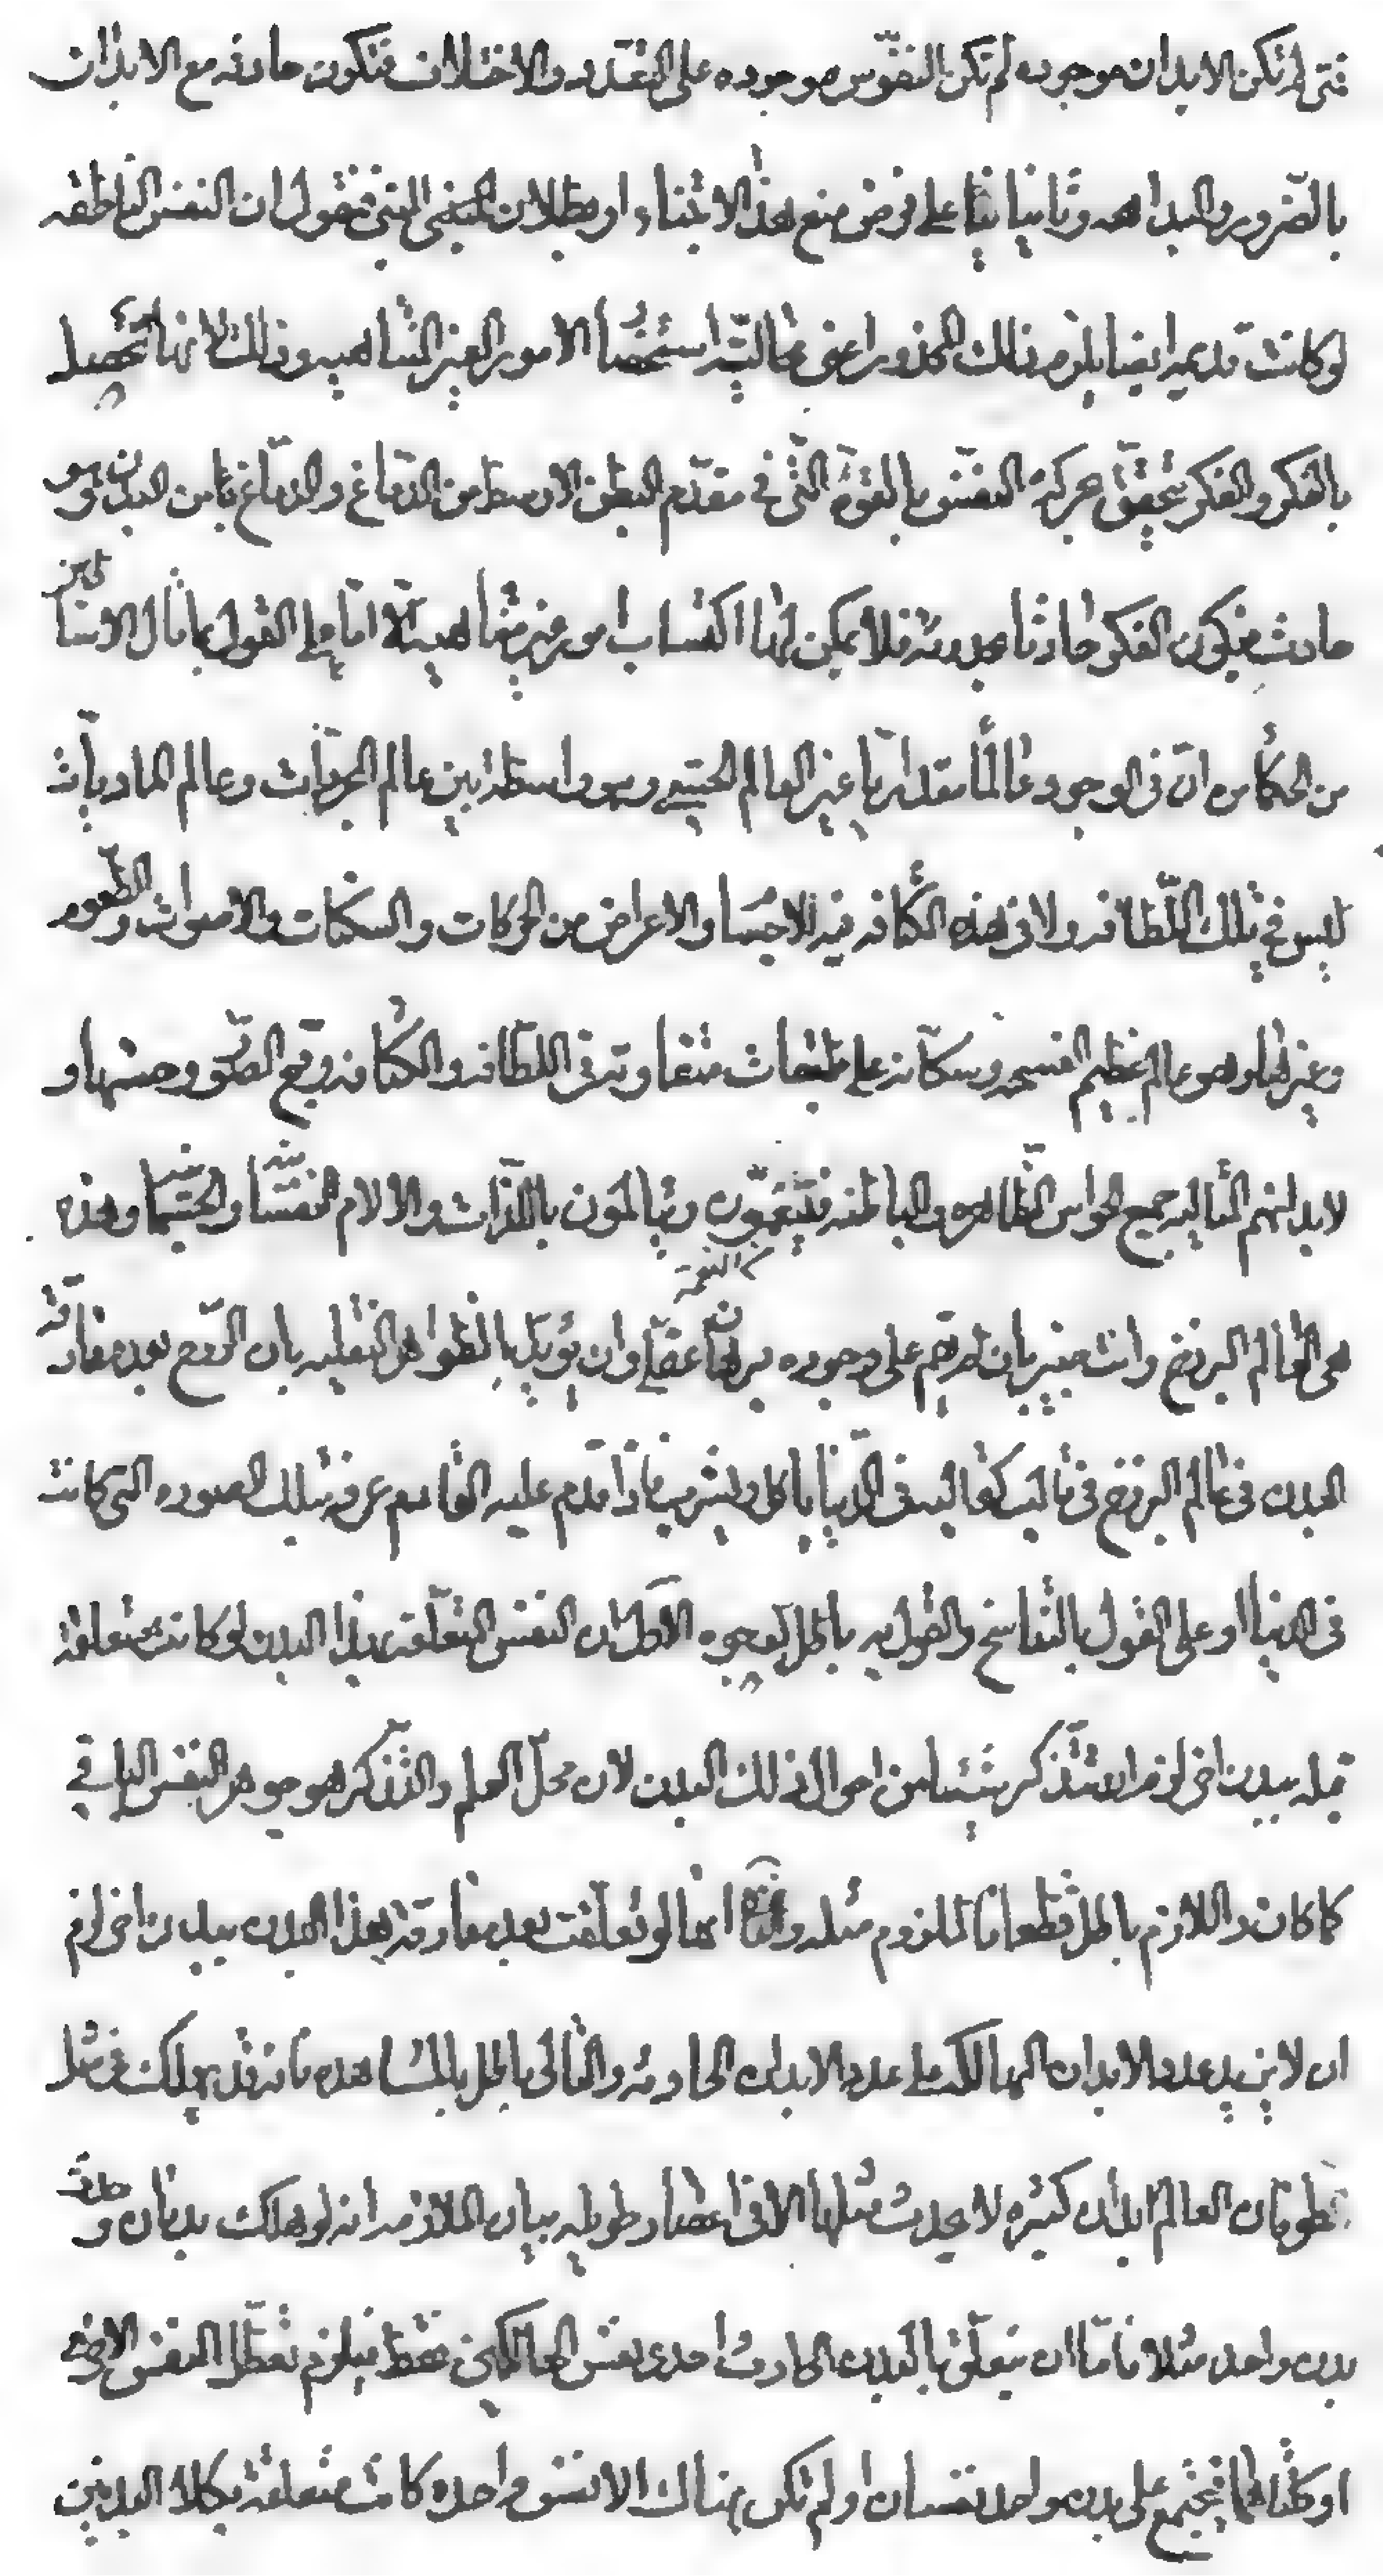 فمتى لم تكن الابدان موجوده لم تكن النفوس موجوده على التعدد والاختلاف فتكون حادثه مع الابدان
بالضروره والبداهه وثانيا بناء على فرض منع هذا الابتناء او بطلان المبنى فنقول ان النفس الناطقه
لو كانت قديمه ايضا يلزم ذلك المحذور اعنى محاليّة استحضا الامور الغير المتناهيه وذلك لانها تحصيل
بالفكر والفكر يتحقق حركة النفس بالقوّة الّتى فى مقدّم البطن الاوسط من الدّماغ والدماغ من البدن وهو
حادث فيكون الفكر حادثا بحدوثه فلا يمكن لها اكتساب امور غير متناهية امّا على القول بما قال الاساطين
من الحكماء من انّ فى الوجود عالمًا مقداريّا غير العالم الحسّى وهو واسطة بين عالم المجرّدات وعالم الماديّات
ليس فى تلك اللّطافه ولا فى هذه الكثافه فيه للاجسا والاعراض من الحركات والسكنات والاصوات والطّعوم
وغيرها وهو عالم عظيم الفسحه وسكّانه على طبقات متفاوته فى اللطافه والكثافه وقبح الصّور وحسنها و
لابدانهم المثاليه جميع الحواس الظّاهره والباطنه فيتنعّمون ويتالمون باللّذات والالام النفسانيه والجسمانيه وهذه
هى العالم البرزخ وانت خبير بان لم يقم على وجوده برهان عقلى وان يؤيّد بالظواهر النقليه بان الرّوح بعد مفارقة
البدن فى عالم البرزخ فى قالب كقالبه فى الدّنيا ياكل ويشرب فاذا قدم عليه القادم عرفه بتلك الصوره التى كانت
فى الدنيا او على القول بالتناسخ والقول به باطل لوجوه الاوّل ان النفس المتعلّقه بهذا البدن لو كانت متعلقة
قبله ببدن اخر لزم ان تتذكّر شيئا من احوال ذلك البدن لان محلّ العلم والتّذكّر هو جوهر النفس الباقى
كما كان واللازم باطل قطعا فالملزوم مثله والثانى انها لو تعلّقت بعد مفارقة هذا البدن ببدن اخر لزم
ان لا يزيد عدد الابدان الهالكة على عدد الابدان الحادثه والتالى باطل بالمشاهده فانه قد يهلك فى مثل
طوفان العالم ابدان كثيره لا يحدث مثلها الا فى اعصار طويله بيان الملازمه انه لو هلك بدنان وحدث
بدن واحد مثلا فامّا ان يتعلّق بالبدن الحادث احدى نفس الهالكين فقط فيلزم تعطّل النفس الاخرى
او كلتاهما فيجتمع على بدن واحد نفسان او لم تكن هناك الا نفس واحده كانت متعلقة بكلا البدنين